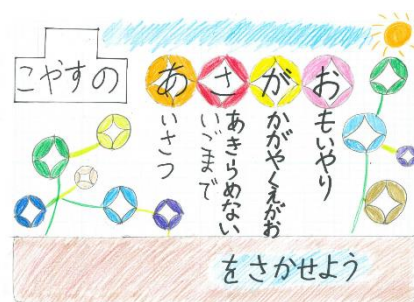 こやすの
あさがお
あいさつ
さいごまであきらめない
がかがやくえがお
おもいやり
をさかせよう